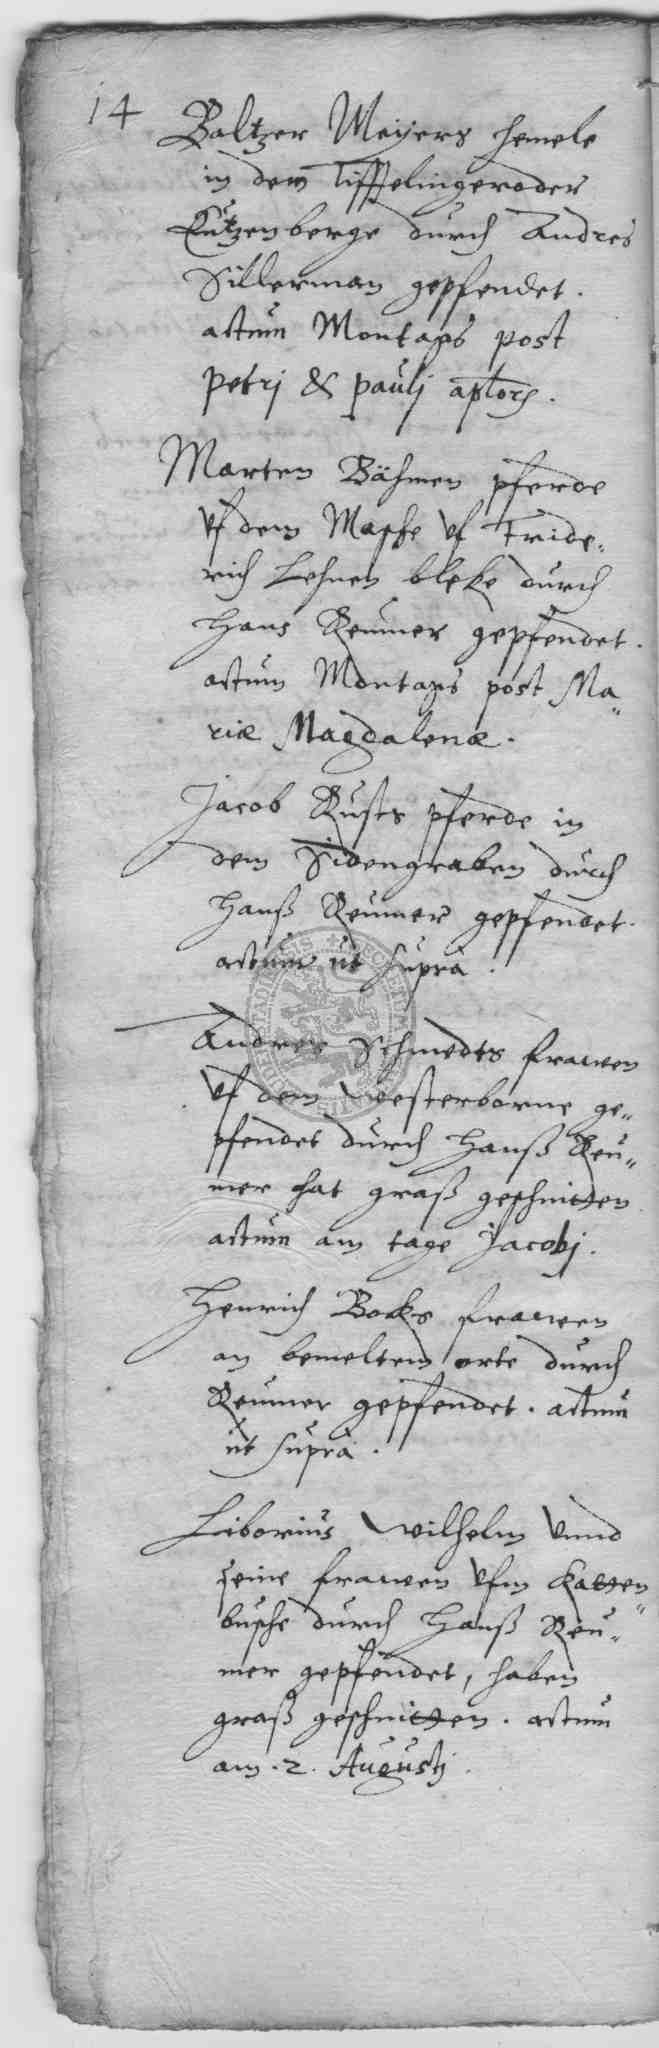 14
Baltzer Meyers hemele
in dem Tifftelingeroder
Cutzenberge durch Andres
Sillerman gepfendet.
actum Montags post
Petrj & Paulj aplorũ.
Marten Bähmen pferde
vf dem Masche vf Fride,,
rich Lehnen bleke durch
Hans Reumer gepfendet.
actum Montags post Ma,,
riæ Magdalenæ.
Jacob Rusts pferde in
dem Sidengraben durch
Hanß Reumer gepfendet.
actum ut suprà.
Andres Schmedts frawen
vf dem Westerborne ge,,
pfendet durch Hanß Reu,,
mer hat graß geschnitten
actum am tage Jacobj.
Henrich Bocks frawen
an bemeltem orte durch
Reumer gepfendet. actum
ut suprà.
Liborius Wilhelm vnnd
seine frawen vfm Katten,,
busche durch Hanß Reu,,
mer gepfendet, haben
graß geschnitten. actum
am .2. Augustj.